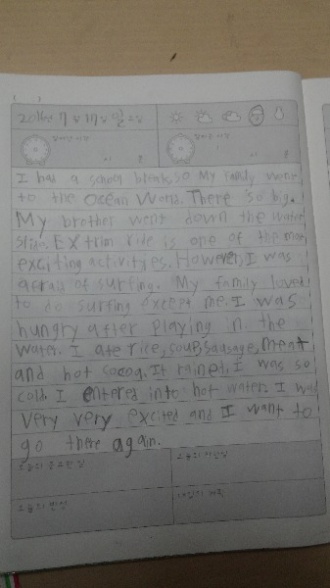 I had a school break, so My family went
to the Ocean World. There so big.
My brother went down the water
slide. EX trim ride is one of the most
exciting activityes. However, I was
afraid of surfing. My family loved
to do surfing except me. I was
hungry after playing in the
water. I ate rice, soup, sausage, meat
and hot cocoa. It rained, I was so
cold. I entered into hot water. I was
very very excited and I want to
go there again.
오늘의 반성